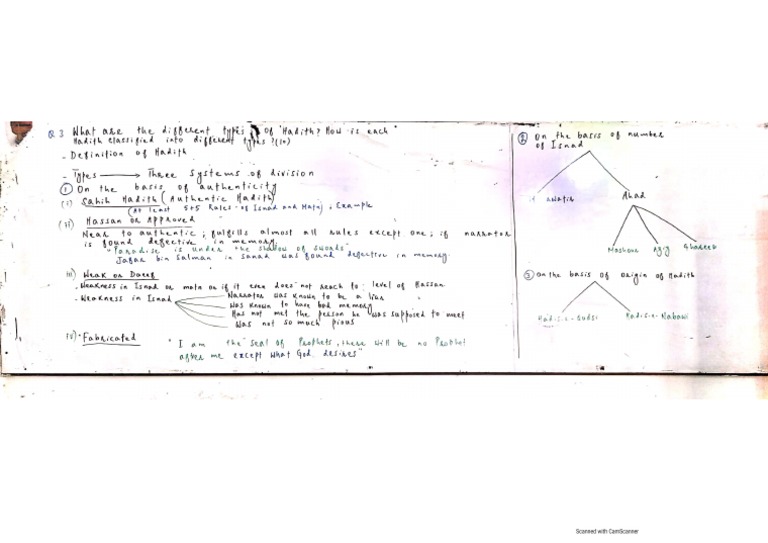 Q 3 What are the different types of Hadith? How is each
Hadith classified into different types?(10)
- Definition of Hadith
- Types → Three Systems of division
① On the basis of authenticity
(i) Sahih Hadith (Authentic Hadith)
(At least 5+5 Rules of Isnad and Matn), Example
(ii) Hassan or Approved
Near to authentic; fulfills almost all rules except one; if narrator
is found defective in memory.
"Paradise is under the shadow of swords"
Jafar bin Salman in sanad was found defective in memory.
Weak or Daeef
. Weakness in Isnad or matn or if it even does not reach to level of Hassan.
. Weakness in Isnad
Narrator was known to be a liar
Was known to have bad memory
Has not met the person he was supposed to meet
Was not so much pious
Fabricated
"I am the seal of Prophets, there will be no Prophet
after me except what God desires"
② On the basis of number
of Isnad
Ahad
Mashoor Aziz Ghareeb
③ On the basis of origin of Hadith
Hadis-e-Qudsi Hadis-e-Nabawi
Scanned with CamScanner